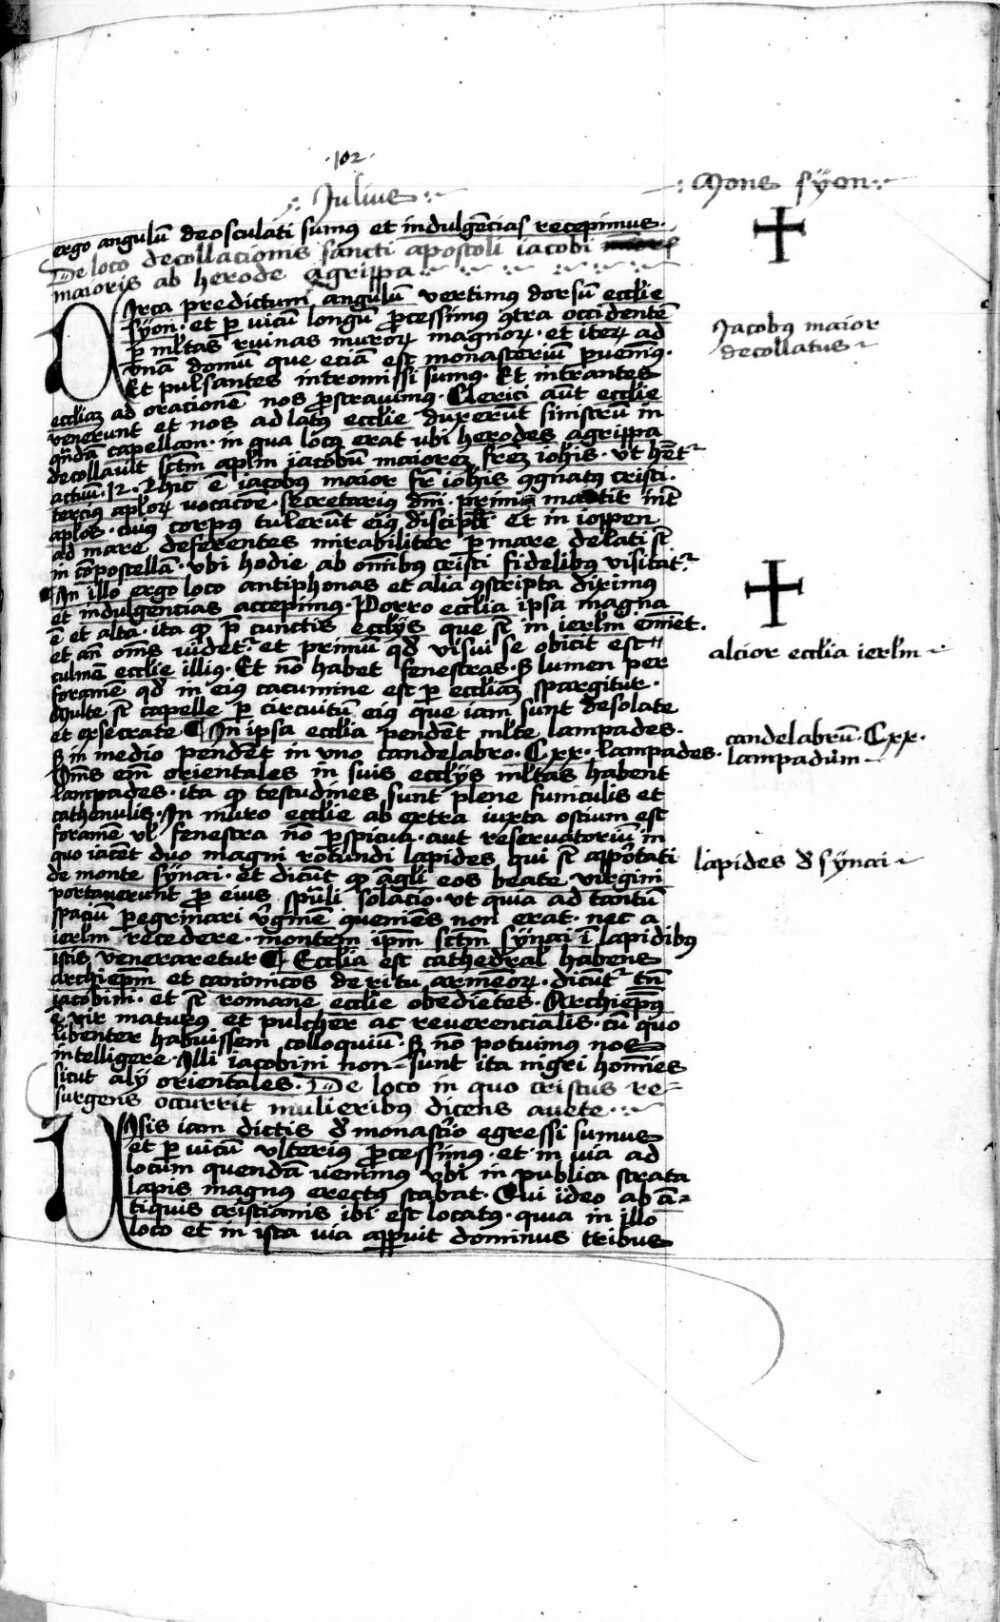 .102.
Julius
Mons syon
ergo angulū deosculati sumꝰ et indulgēcias recepimus.
De loco decollacionis sancti apostoli iacobi
maioris ab herode Agrippa
Circa predictum angulū vertimꝰ dorsū ecclīe
syon. et ꝑ vicū longū ꝓcessimꝰ 9tra occidentē
ꝑ ml̄tas ruinas murorꝝ magnorꝝ. et iterꝝ ad
vnā domū que eciam est monasteriū ꝑuenimꝰ.
Et pulsantes intromissi sumꝰ. Et intrantes
eccliaꝫ ad oracionē nos ꝓstravimꝰ. Clerici aūt ecclīe
venerunt et nos ad latꝰ ecclīe duxerūt sinistrū in
qn̄dā capellam. in qua locꝰ erat vbi herodes agrippa
decollauit sctm̄ aplm̄ iacobū maioreꝫ freꝫ iohīs. vt hēt᷒
actuū. 12. Hic ē iacobus maior fr̄ iohīs 9gnatꝰ cristi.
tercius aplorꝝ vocacōe. secretarius dn̄i. primꝰ martir int̄
aplos. cuiꝰ corpꝰ tulerūt eiꝰ discipl̄i. Et in ioppen
ad mare deferentes mirabiliter ꝑ mare delati sū̄
in cōpostellā. vbi hodie ab omībus cristi fidelibus visitat᷒
In illo ergo loco antiphonas et alia 9scripta diximus
et indulgencias accepimꝰ. Porro ecclīa ipsa magna
ē et alta. ita qꝫ p̄ cunctis ecclījs que sū̄ in ierlm̄ emīet.
et añ om̄s videt᷒. et primū qd̄ visui se obicit est
culmē ecclīe illiꝰ. Et nō habet fenestras. sꝫ lumen per
foramē qd̄ in eiꝰ cacumine est ꝑ eccliaꝫ spargitur.
Multe sū̄ capelle ꝑ circuitū eiꝰ que iam sunt desolate
et exsecrate. In ipsa ecclīa pendēt ml̄te lampades.
sꝫ in medio pendēt in vno candelabro. Cxx. lampades.
Om̄s em̄ orientales in suis ecclijs ml̄tas habent
lampades. ita qꝫ testudines sunt plene funiculis et
cathenulis. In muro ecclīe ab extra iuxta ostium est
foramē vl̄ fenestra nō ꝑspicua. aut reseruatoriū in
quo iacēt duo magni rotundi lapides qui sū̄ apportati
de monte synai. et dicūt qꝫ āgli eos beate virgini
portauerunt ꝓ eius spūli solacio. vt quia ad tantū
spaciū ꝑegrinari vʼginē queniēs non erat. nec a
ierlm̄ recedere. montem ip̄m sctm̄ synai ī lapidibꝰ
istis veneraretur. Ecclīa est cathedral' habens
archiepm̄ et canonicos de ritu armēorꝝ. dicūt᷒ tn̄
iacobini. et sū̄ romane ecclīe obediētes. Archiepꝰ
ē vir maturꝰ et pulcher ac reuerencialis. cū quo
libenter habuissem colloquiū. sꝫ nō potuimꝰ nos
intelligere. Illi iacobini non sunt ita nigri homīes
sicut alij orientales. De loco in quo cristus re=
surgens occurrit mulieribꝰ dicens auete.
Visis iam dictis de monastʼio egressi sumus
et ꝑ vicū vlterius ꝓcessimꝰ. et in via ad
locum quendā venimꝰ vbi in publica strata
lapis magnꝰ erectꝰ stabat. Qui ideo ab ā=
tiquis cristianis ibi est locatꝰ. quia in illo
loco et in ista via apparuit dominus tribus
Jacobꝰ maior
decollatus
altior ecclīa ierlm̄
candelabrū. Cxx.
lampadum
lapides de synai